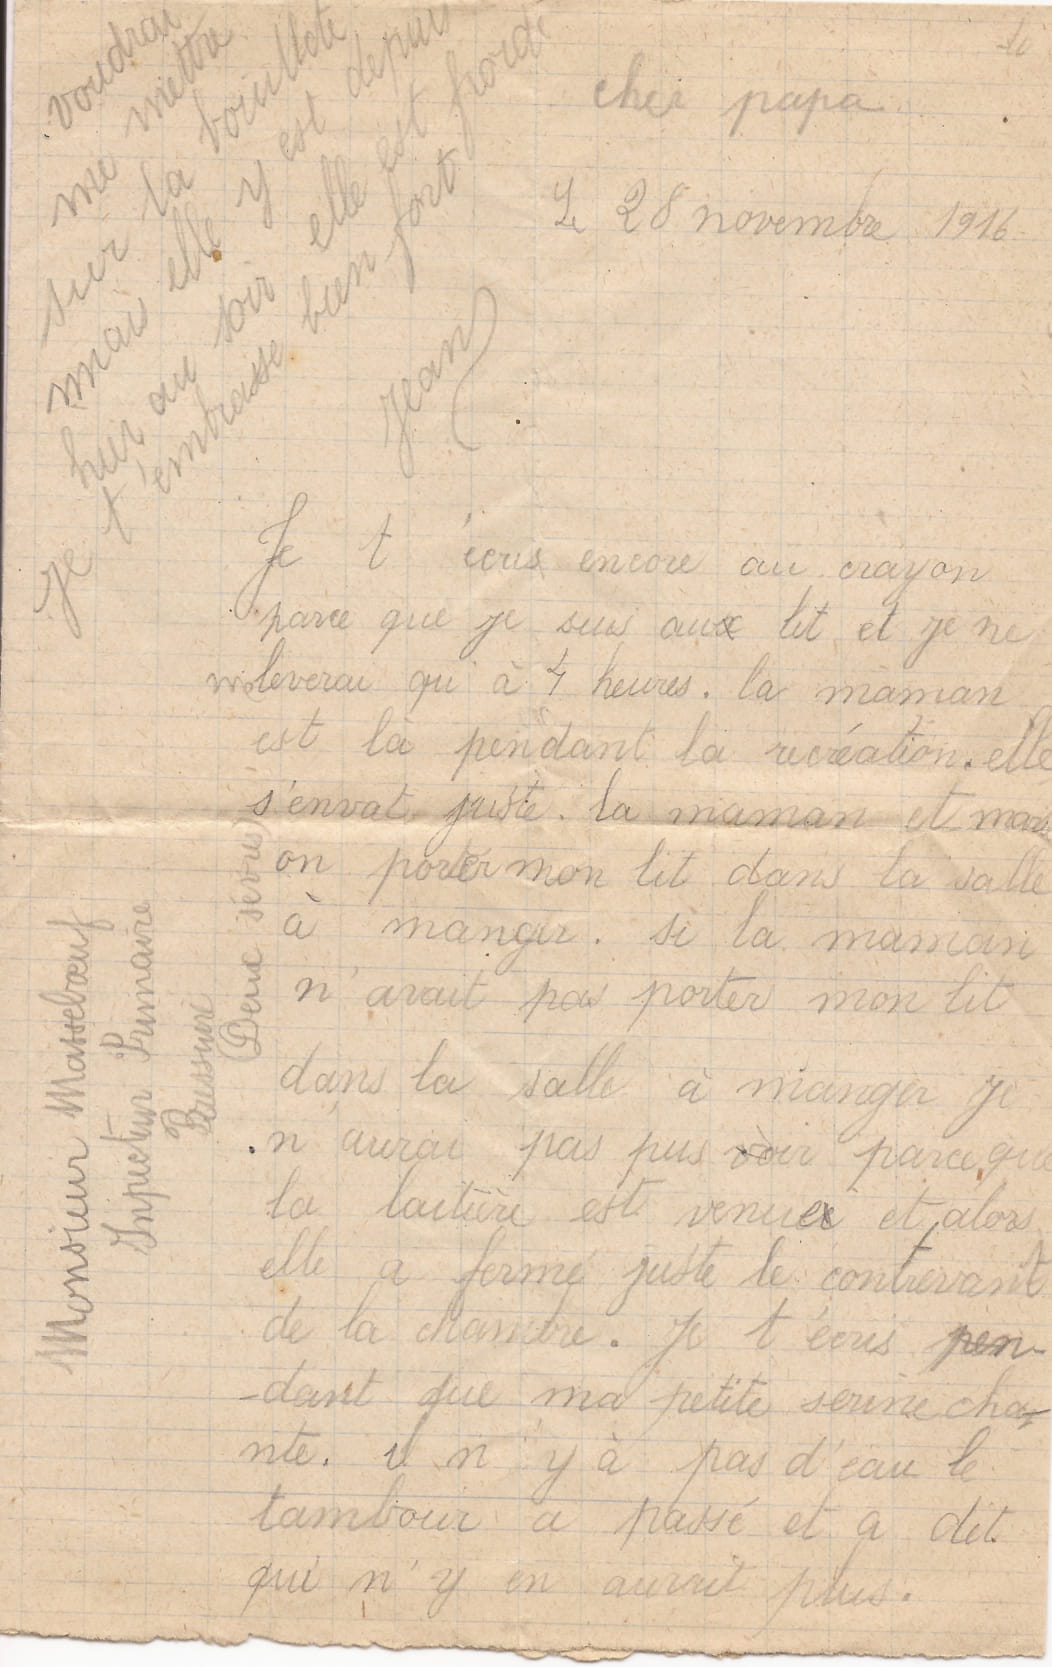 cher papa
Le 28 novembre 1916
Je t'écris encore au crayon
parce que je suis aux lit et je ne
me leverai qu'à 4 heures. la maman
est là pendant la recréation. elle
s'envat juste. la maman et mari
on porter mon lit dans la salle
à manger. si la maman
n'avait pas porter mon lit
dans la salle à manger je
n'aurai pas pus voir parceque
la laitière est venue et alors
elle a fermé juste le contrevant
de la chambre. Je t'écris pen-
-dant que ma petite serine cha-
nte. il n'y à pas d'eau le
tambour a passé et a dit
qui n'y en aurait plus.
voudrai
me mettre
sur la bouillote
mais elle y est depuis
hier au soir elle est froide
Je t'embrasse bien fort
Jean
Monsieur Massebœuf
Inpecteur Primaire
Bressuire
(Deux sèvres)